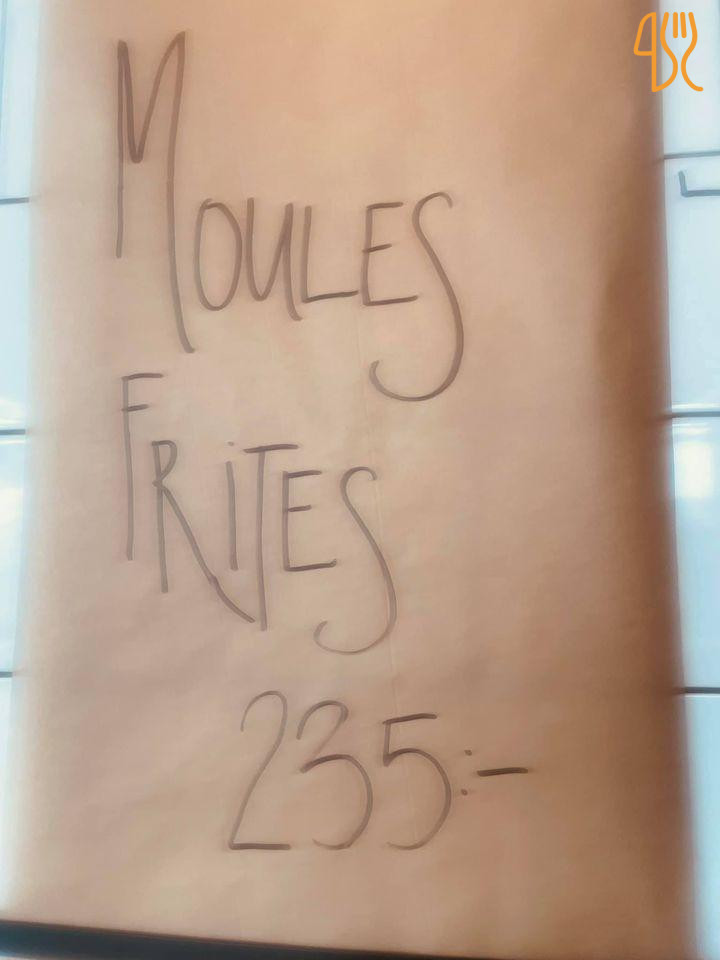 MOULES
FRiTES
235:-